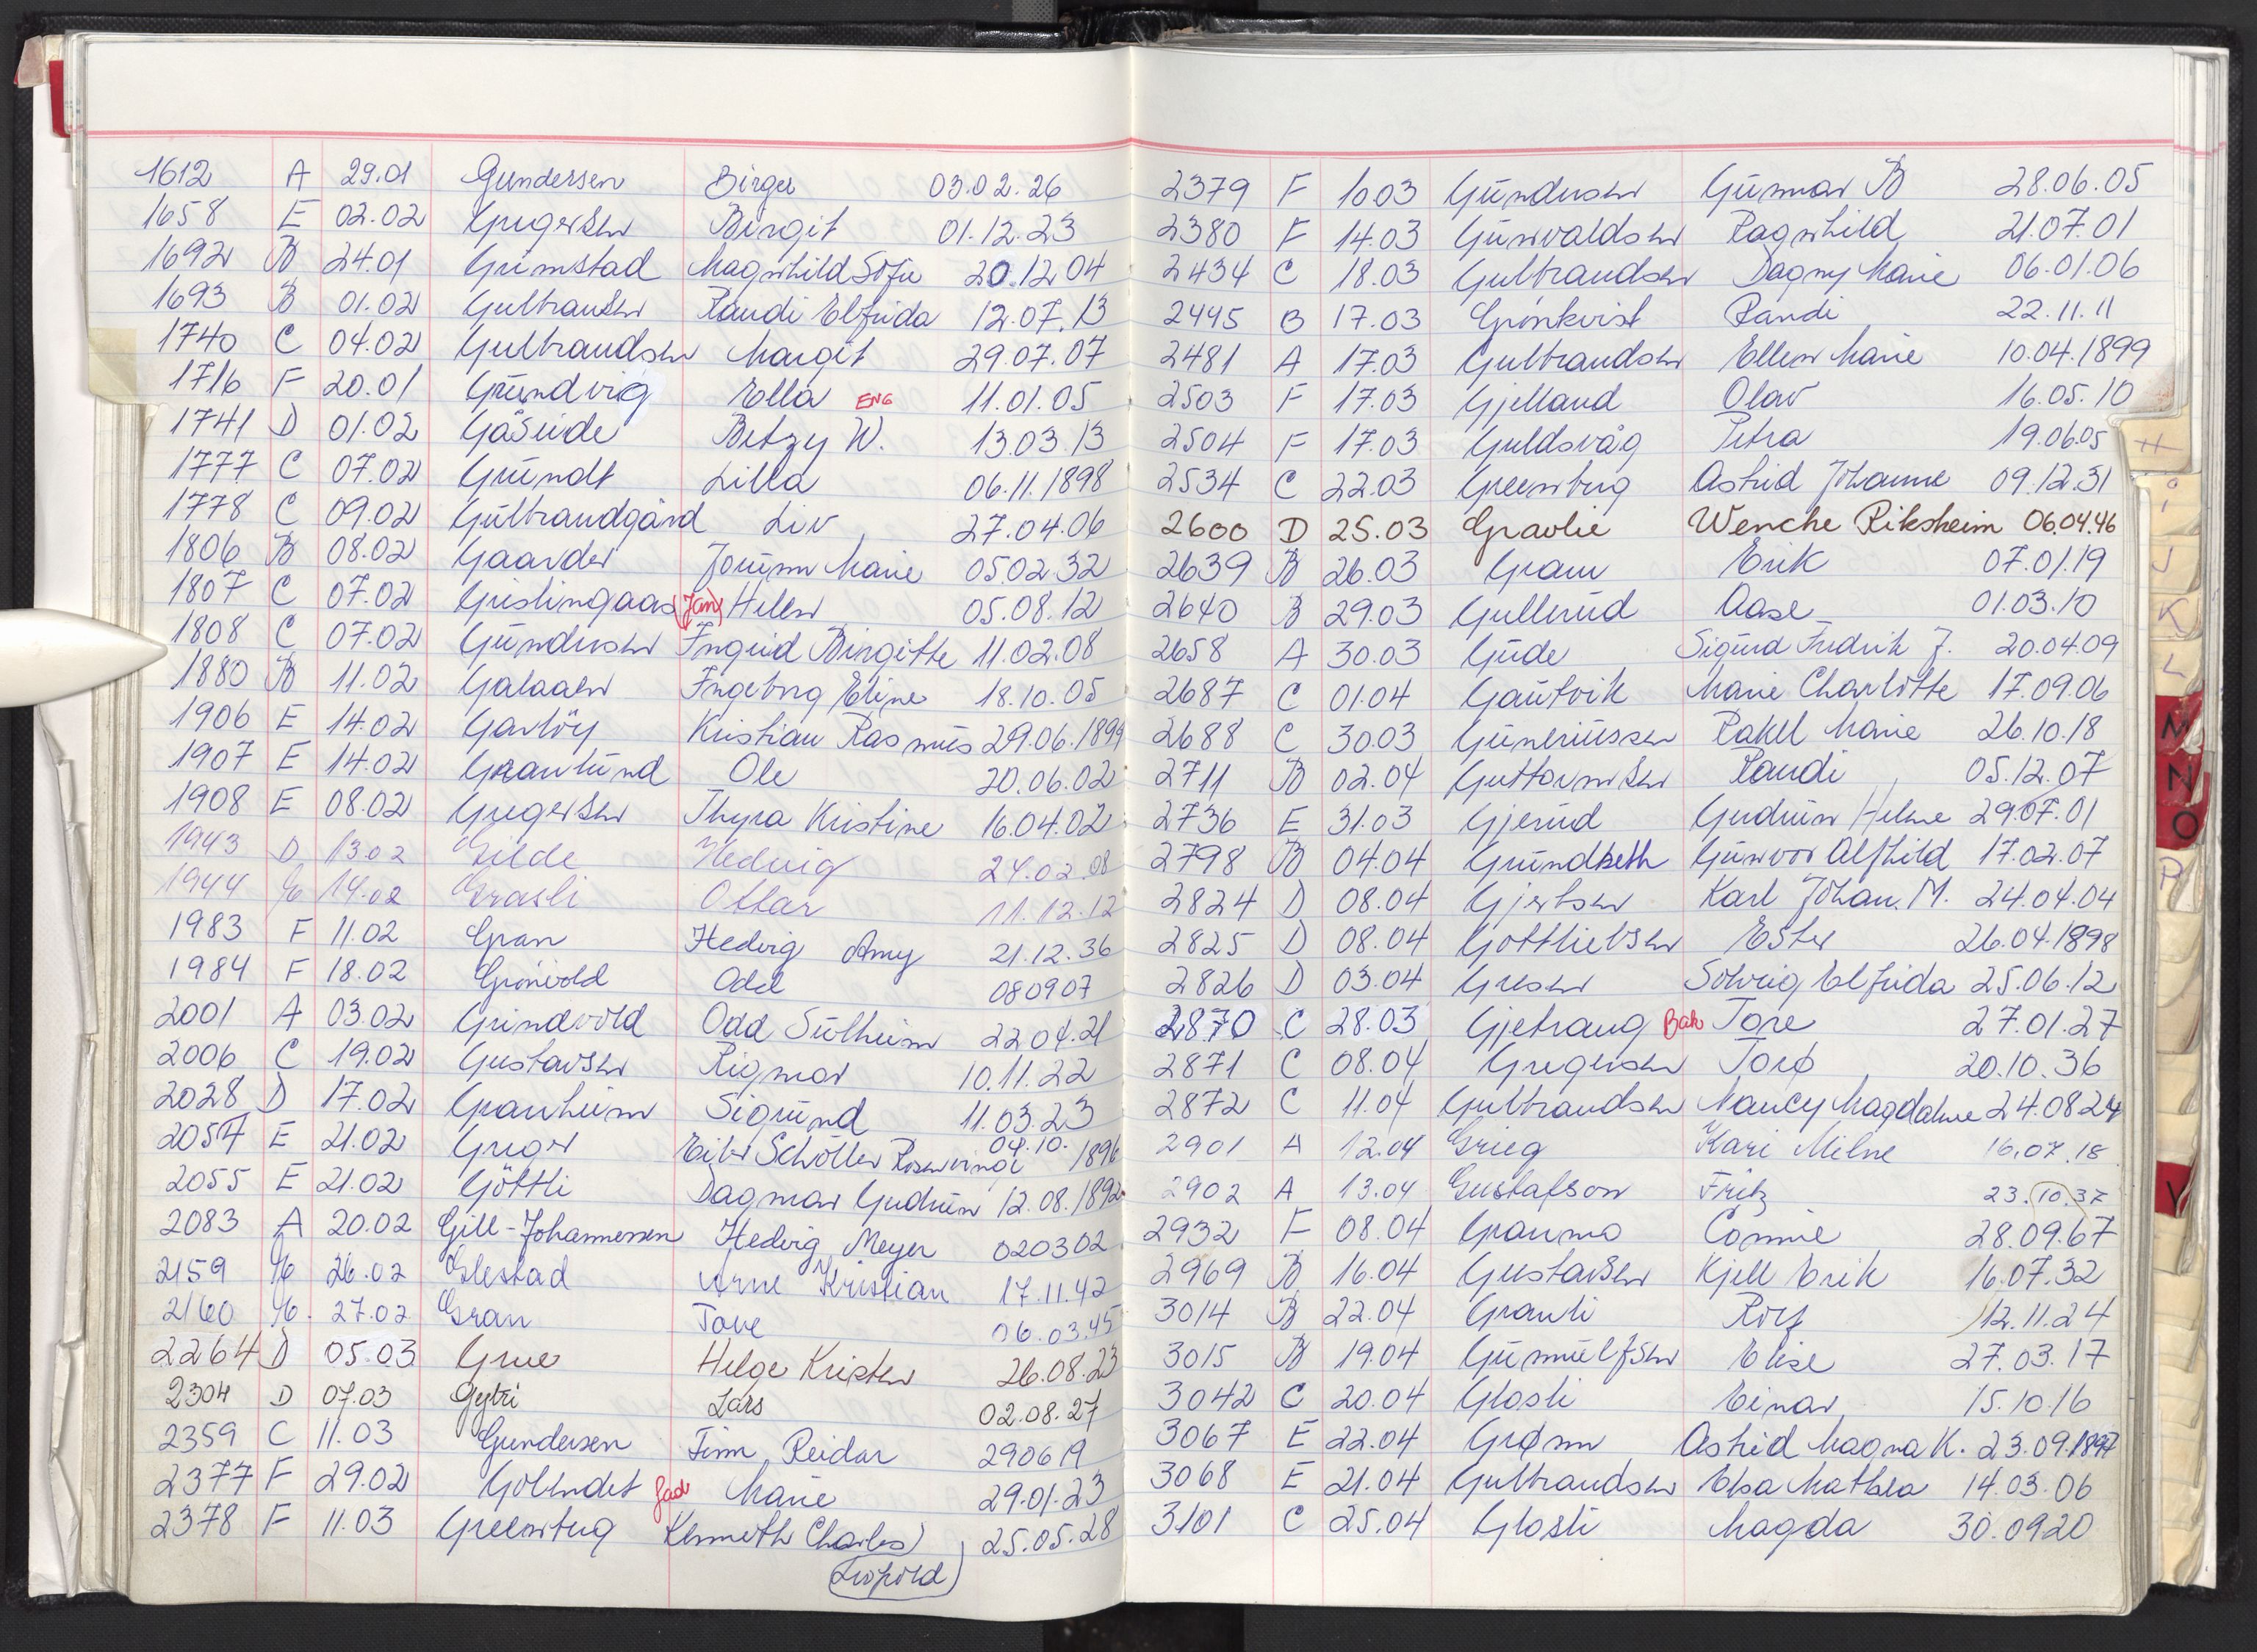 1612 A 29.01 Gundersen Birger 03.02.26
1658 E 02.02 Gregersen Birgit 01.12.23
1692 B 24.01 Grimstad Magnhild Sofie 20.12 04
1693 B 01.02 Gulbransen Randi Elfrida 12.07.13
1740 C 04.02 Gulbrandsen Margit 29.07.07
1716 F 20.01 Grundvig Ella ENG 11.01.05
1741 D 01.02 Betzy W. 13.03.13
1777 C 07.02 Grundt Lilla 06.11.1898
1778 C 09.02 Gulbrandgård Liv 27.04.06
1806 B 08.02 Gaarder Jorunn Marie 05.02 32
1807 C 07.02 Grislingaas (Jan) Hellen 05.08.12
1808 C 07.02 Gundersen Ingrid Birgitte 11.02.08
1880 B 11.02 Galaaen Ingeborg Eline 18.10.05
1906 E 14.02 Garløy Kristian Rasmus 29.06.1899
1907 E 14.02 Granlund Ole 20.06.02
1908 E 08.02 Gregersen Thyra Kristine 16.04.02
1943 D 13.02 Gilde Hedvig 24.02.08
1944 E 14.02 Grasli Ottar 11.12.12
1983 F 11.02 Gran Hedvig Amy 21.12.36
1984 F 18.02 Grönvold Odd 080907
2001 A 03.02 Grindvold Odd Sulheim 22.04.21
2006 C 19.02 Gustavsen Rigmor 10.11.22
2028 D 17.02 Granheim Sigrund 11.03.23
2054 E 21.02 Greger Schöller Rosenvinge 04.10. 1896
2055 E 21.02 Göttli Dagmar Gudrun 12.08.1892
2083 A 20.02 Gill-Johannessen Hedvig Meyer 020302
2159 E 26.02 Glestad Arne Kristian 17.11.42
2160 E. 27.02 Gran Tove 06.03.45
2264 D 05.03 Grue Helge Kristen 26.08.23
2304 D 07.03 Gytri Lars 02.08.27
2359 C 11.03 Gundersen Finn Reidar 290619
2377 F 29.02 Gölendet Gad Marie 29.01.23
2378 F 11.03 Greenberg Kenneth Charles 25.05.28
Leopold
2379 F 10.03 Gundersen Gunnar B 28.06.05
2380 F 14.03 Gunvaldsen Ragnhild 21.07.01
2434 C 18.03 Gulbrandsen Dagny Marie 06.01.06
2445 B 17.03 Grönkvist Randi 22.11.11
2481 A 17.03 Gulbrandsen Ellen Marie 10.04.1899
2503 F 17.03 Gjelland Olav 16.05.10
2504 F 17.03 Guldsvåg Petra 19.06.05
2534 C 22.03 Greenberg Astrid Johanne 09.12.31
2600 D 25.03 Gravlie Wenche Riksheim 06.04.46
2639 B 26.03 Gram Erik 07.01.19
2640 B 29.03 Gullerud Aase 01.03.10
2658 A 30.03 Gude Sigurd Fredrik J. 20.04.09
2687 C 01.04 Gautvik Marie Charlotte 17.09.06
2688 C 30.03 Guneriussen Rakel Marie 26.10.18
2711 B 02.04 Guttormsen Randi 05.12.07
2736 E 31.03 Gjerud Gudrun Helene 29.07.01
2798 B 04.04 Grundseth Gunvor Alfhild 17.02.07
2824 D 08.04 Gjertsen Karl Johan. M. 24.04.04
2825 D 08.04 Gottliebsen Ester 26.04.1898
2826 D 03.04 Gresen Solveig Elfrida 25.06.12
2870 C 28.03 Gjetrang Bak Tore 27.01.27
2871 C 08.04 Gregersen Torø 20.10.36
2872 C 11.04 Gulbrandsen Nancy Magdalene 24.08 24
2901 A 12.04 Grieg Kari Milne 16.07.18
2902 A 13.04 Gustafson Fritz 23.10.37
2932 F 08.04 Granmo Connie 28.09.67
2969 B 16.04 Gustavsen Kjell Erik 16.07.32
3014 B 22.04 Granli Rolf 12.11.24
3015 B 19.04 Gunnulfsen Elise 27.03.17
3042 C 20.04 Glosli Einar 15.10.16
3067 E 22.04 Grønn Astrid Magna K. 23.09.1897
3068 E 21.04 Gulbrandsen Elsa Mathea 14.03.06
3101 C 25.04 Glosli Magda 30.0920
H
I
J
K
L
M
N
O
P
V